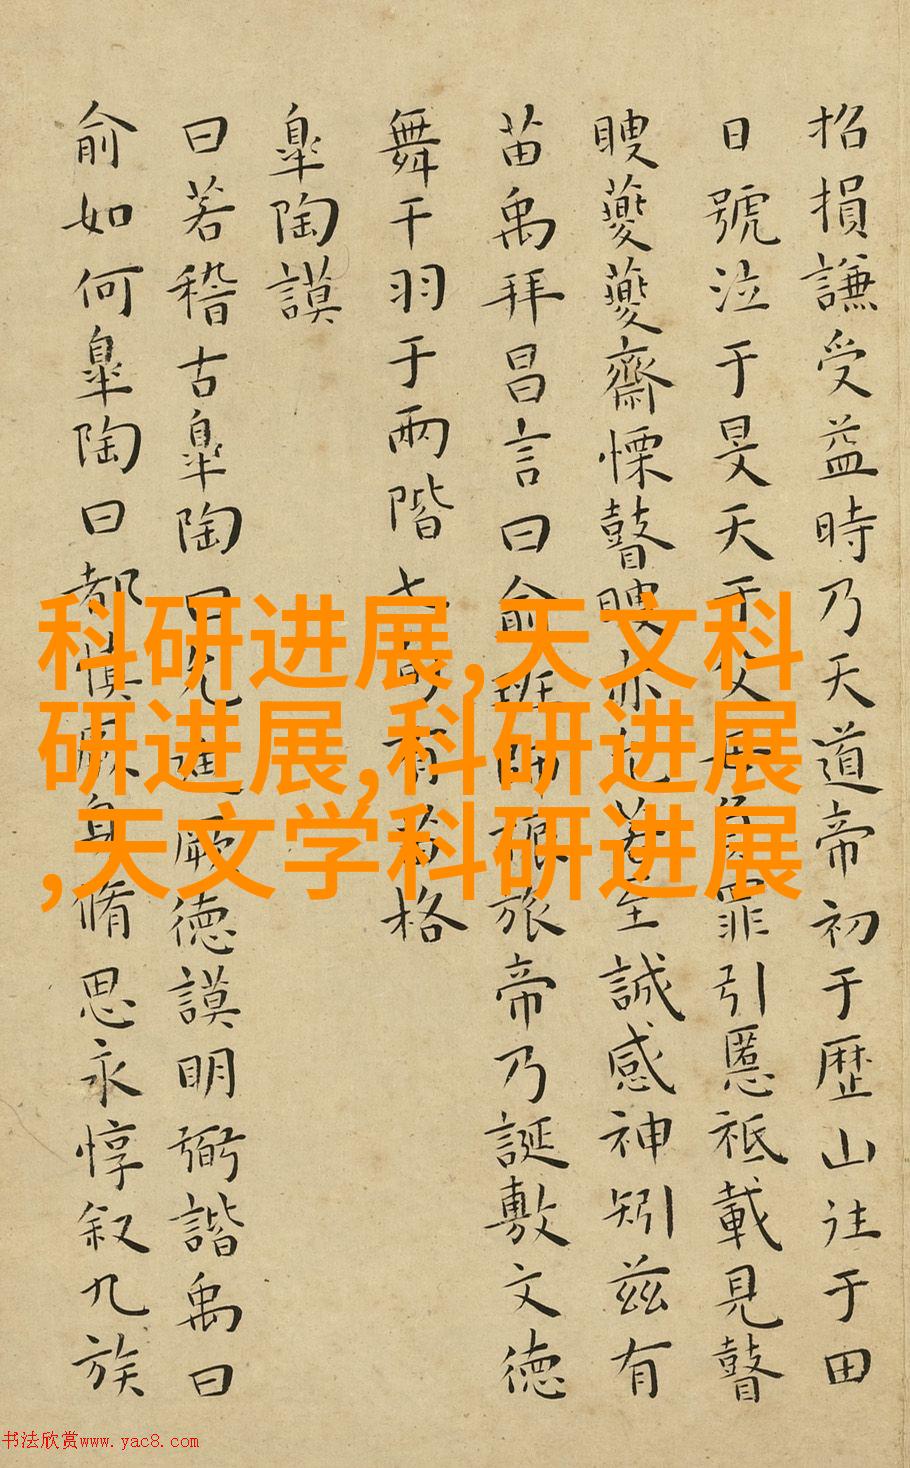 招損謙受益時乃天道帝初于歷山往于田
日號泣于旻天于父母負罪引慝祗載見瞽
瞍夔夔齋慄瞽瞍亦允若至誠感神矧茲有
苗禹拜昌言曰俞班師振旅帝乃誕敷文德
舞干羽于兩階七旬有苗格
皐陶謨
曰若稽古皐陶曰允迪厥德謨明弼諧禹曰
俞如何皐陶曰都慎厥身脩思永惇叙九族
科研进展,天文科
研进展,科研进展
,天文学科研进展
书法欣赏www.yac8.com